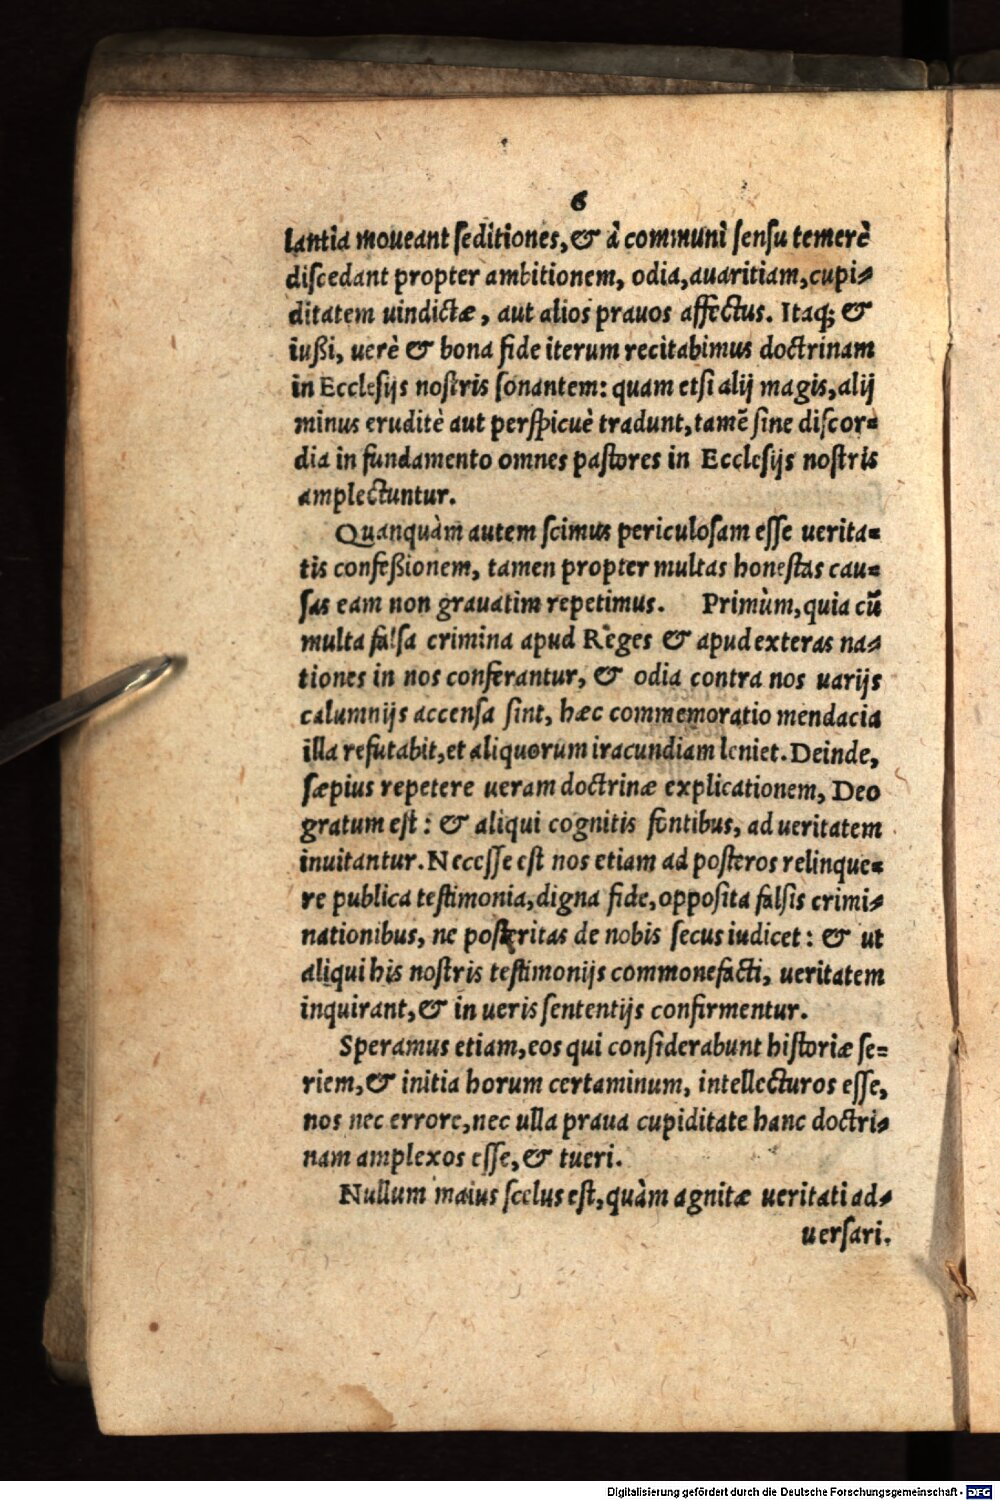 6
lantia moueant ſeditiones, & à communi ſenſu temerè
diſcedant propter ambitionem, odia, auaritiam, cupi-
ditatem uindictæ, aut alios prauos affectus. Itaq; &
iußi, uerè & bona fide iterum recitabimus doctrinam
in Eccleſijs noſtris ſonantem: quam etſi alij magis, alij
minus eruditè aut perſpicuè tradunt, tamẽ ſine diſcor-
dia in fundamento omnes paſtores in Eccleſijs noſtris
amplectuntur.
Quanquàm autem ſcimus periculoſam eſſe uerita-
tis confeßionem, tamen propter multas honeſtas cau-
ſas eam non grauatim repetimus. Primùm, quia cũ
multa falſa crimina apud Reges & apud exteras na-
tiones in nos conferantur, & odia contra nos uarijs
calumnijs accenſa ſint, hæc commemoratio mendacia
illa refutabit, et aliquorum iracundiam leniet. Deinde,
ſæpius repetere ueram doctrinæ explicationem, Deo
gratum eſt: & aliqui cognitis fontibus, ad ueritatem
inuitantur. Neceſſe eſt nos etiam ad poſteros relinque-
re publica teſtimonia, digna fide, oppoſita falſis crimi-
nationibus, ne poſteritas de nobis ſecus iudicet: & ut
aliqui his noſtris teſtimonijs commonefacti, ueritatem
inquirant, & in ueris ſententijs confirmentur.
Speramus etiam, eos qui conſiderabunt hiſtoriæ ſe-
riem, & initia horum certaminum, intellecturos eſſe,
nos nec errore, nec ulla praua cupiditate hanc doctri-
nam amplexos eſſe, & tueri.
Nullum maius ſcelus eſt, quàm agnitæ ueritati ad-
uerſari.
Digitalisierung gefördert durch die Deutsche Forschungsgemeinschaft - DFG